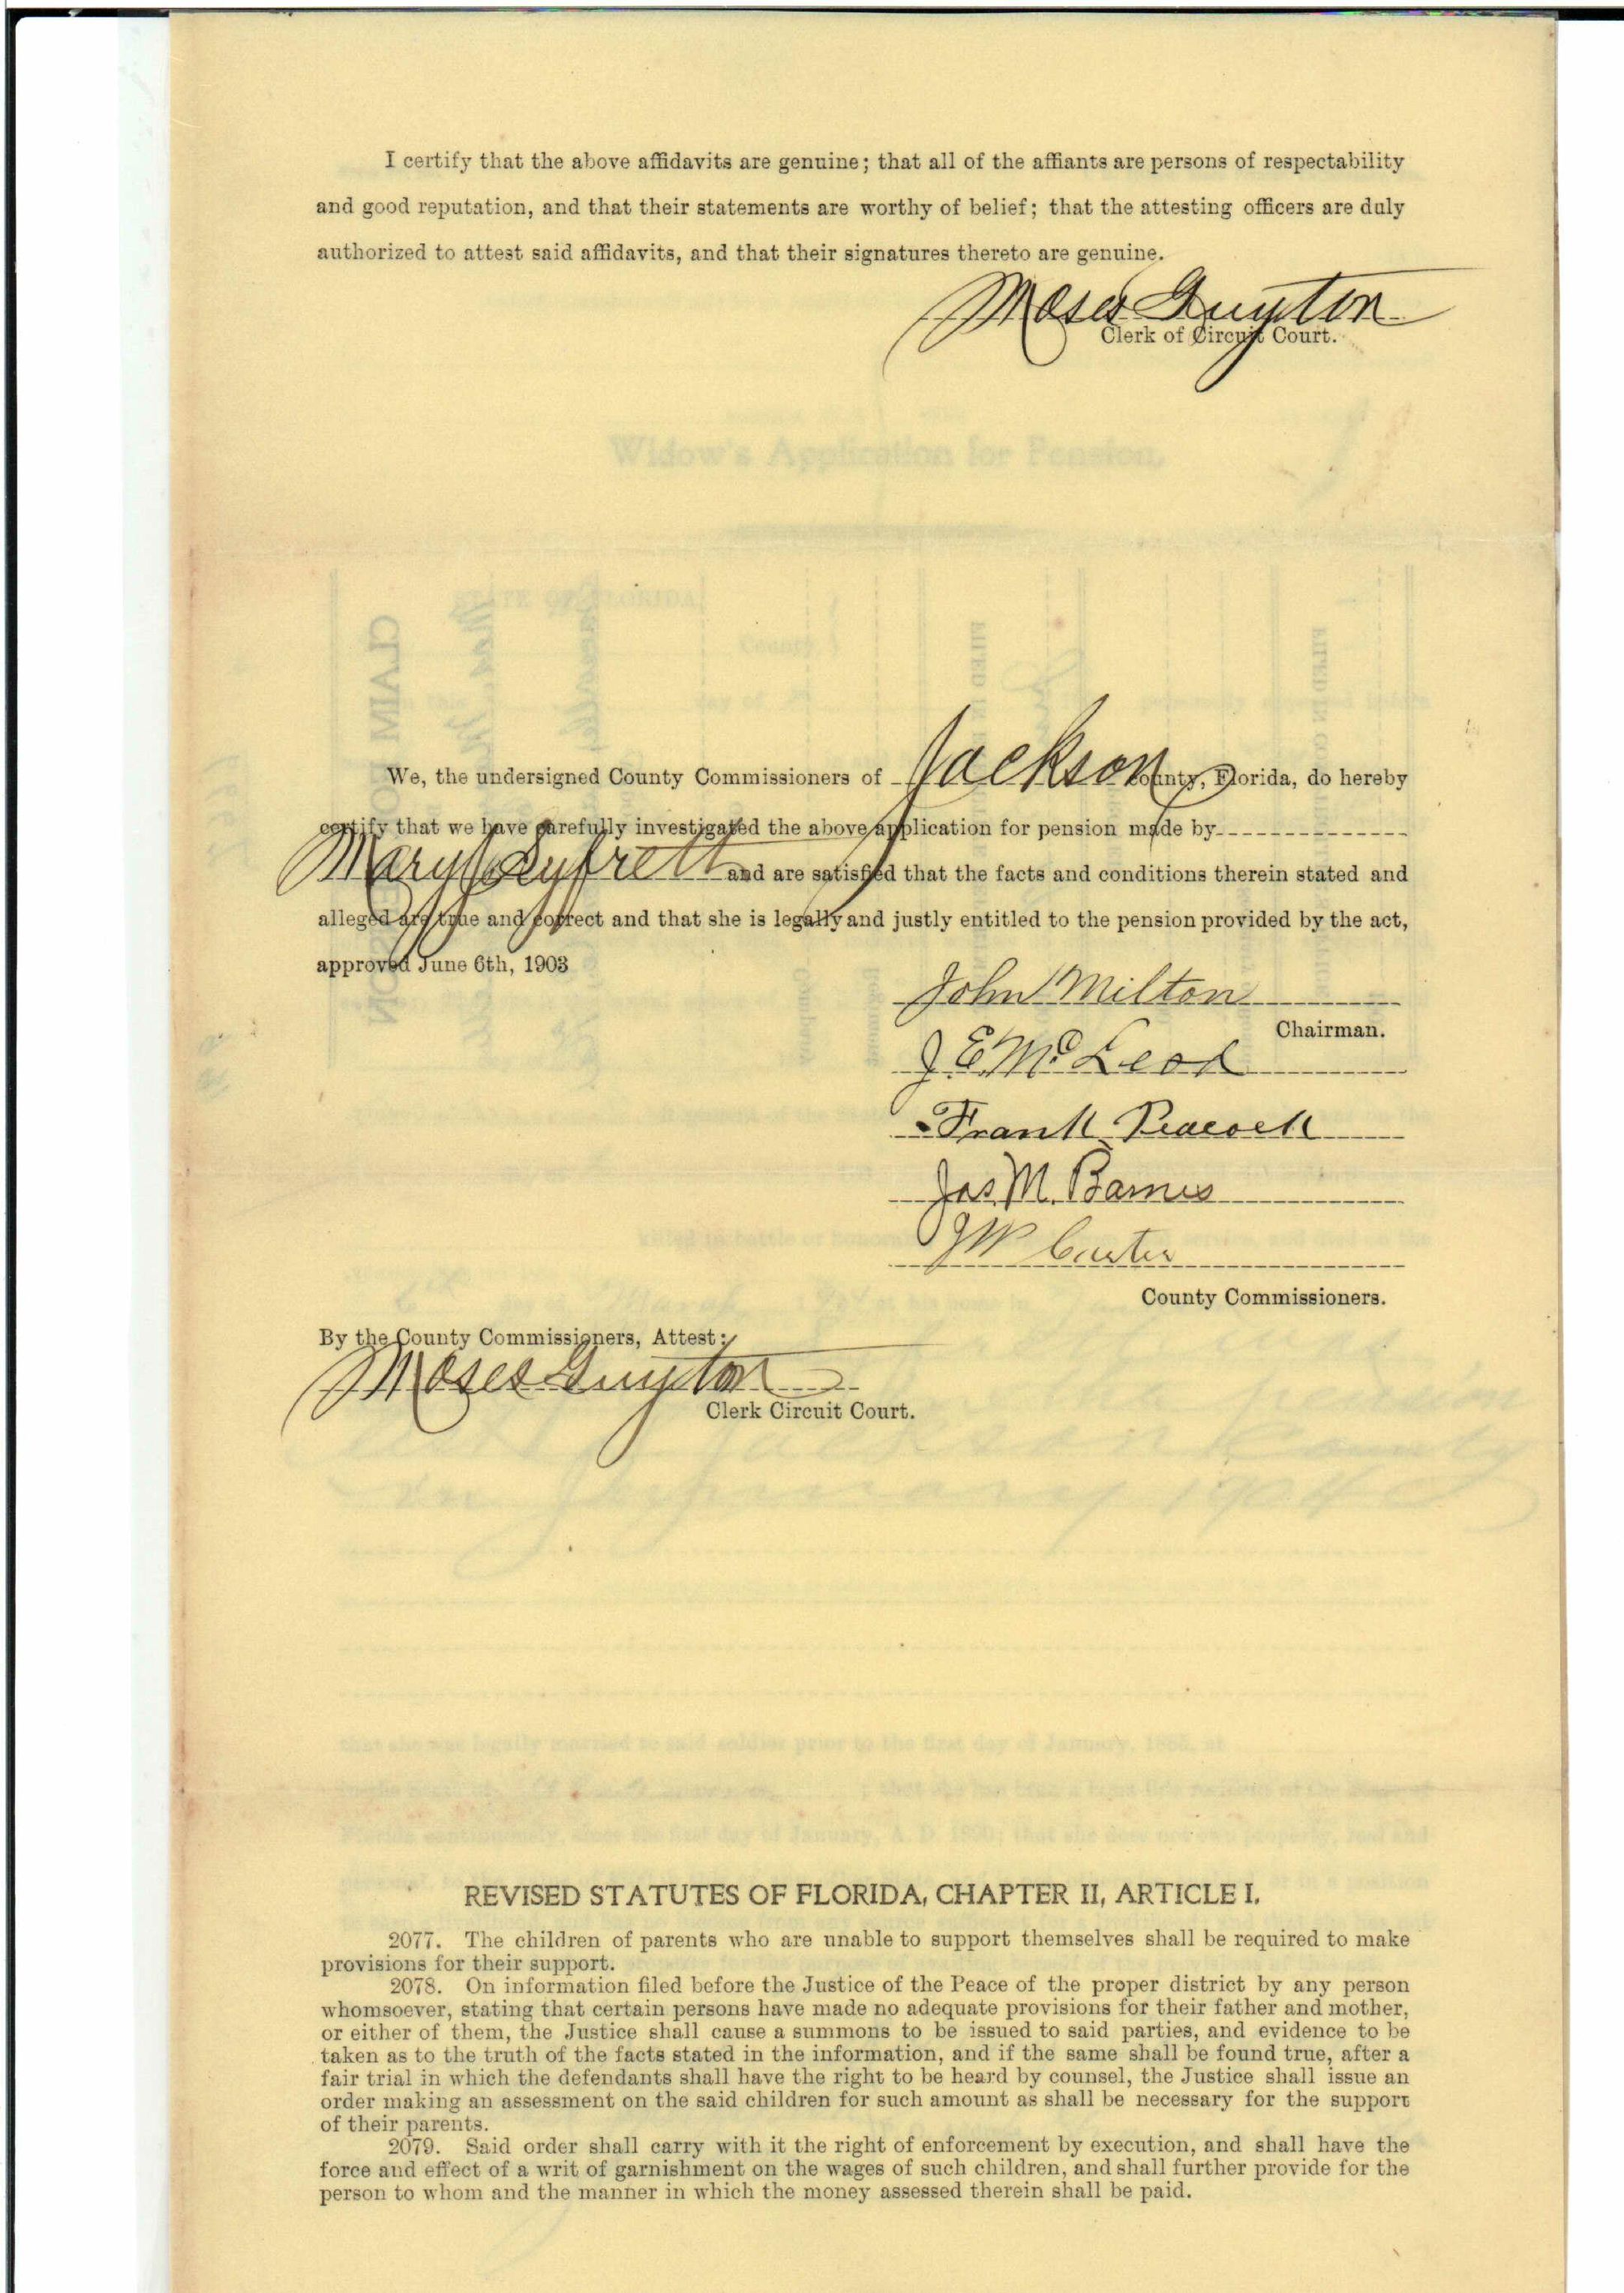 I certify that the above affidavits are genuine; that all of the affiants are persons of respectability
and good reputation, and that their statements are worthy of belief; that the attesting officers are duly
authorized to attest said affidavits, and that their signatures thereto are genuine.
Moses Guyton
Clerk of Circuit Court.
Widow's Application for Pension.
STATE OF FLORIDA
County
We, the undersigned County Commissioners of Jackson County, Florida, do hereby
certify that we have carefully investigated the above application for pension made by
Mary Syfrett and are satisfied that the facts and conditions therein stated and
alleged are true and correct and that she is legally and justly entitled to the pension provided by the act,
approved June 6th, 1903
John Milton
Chairman.
J E McLeod
Frank Peacock
Jas. M. Barnes
J W Carter
County Commissioners.
By the County Commissioners, Attest:
Moses Guyton
Clerk Circuit Court.
REVISED STATUTES OF FLORIDA, CHAPTER II, ARTICLE I.
2077. The children of parents who are unable to support themselves shall be required to make
provisions for their support.
2078. On information filed before the Justice of the Peace of the proper district by any person
whomsoever, stating that certain persons have made no adequate provisions for their father and mother,
or either of them, the Justice shall cause a summons to be issued to said parties, and evidence to be
taken as to the truth of the facts stated in the information, and if the same shall be found true, after a
fair trial in which the defendants shall have the right to be heard by counsel, the Justice shall issue an
order making an assessment on the said children for such amount as shall be necessary for the support
of their parents.
2079. Said order shall carry with it the right of enforcement by execution, and shall have the
force and effect of a writ of garnishment on the wages of such children, and shall further provide for the
person to whom and the manner in which the money assessed therein shall be paid.